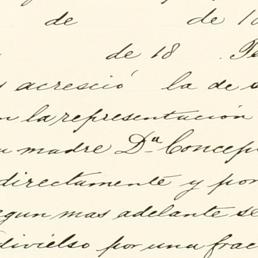 de de 18
de 18 . Te
s acresció la de s
n la representación
u madre D.ª Concep
directamente y por
egun mas adelante se
divielso por una frac